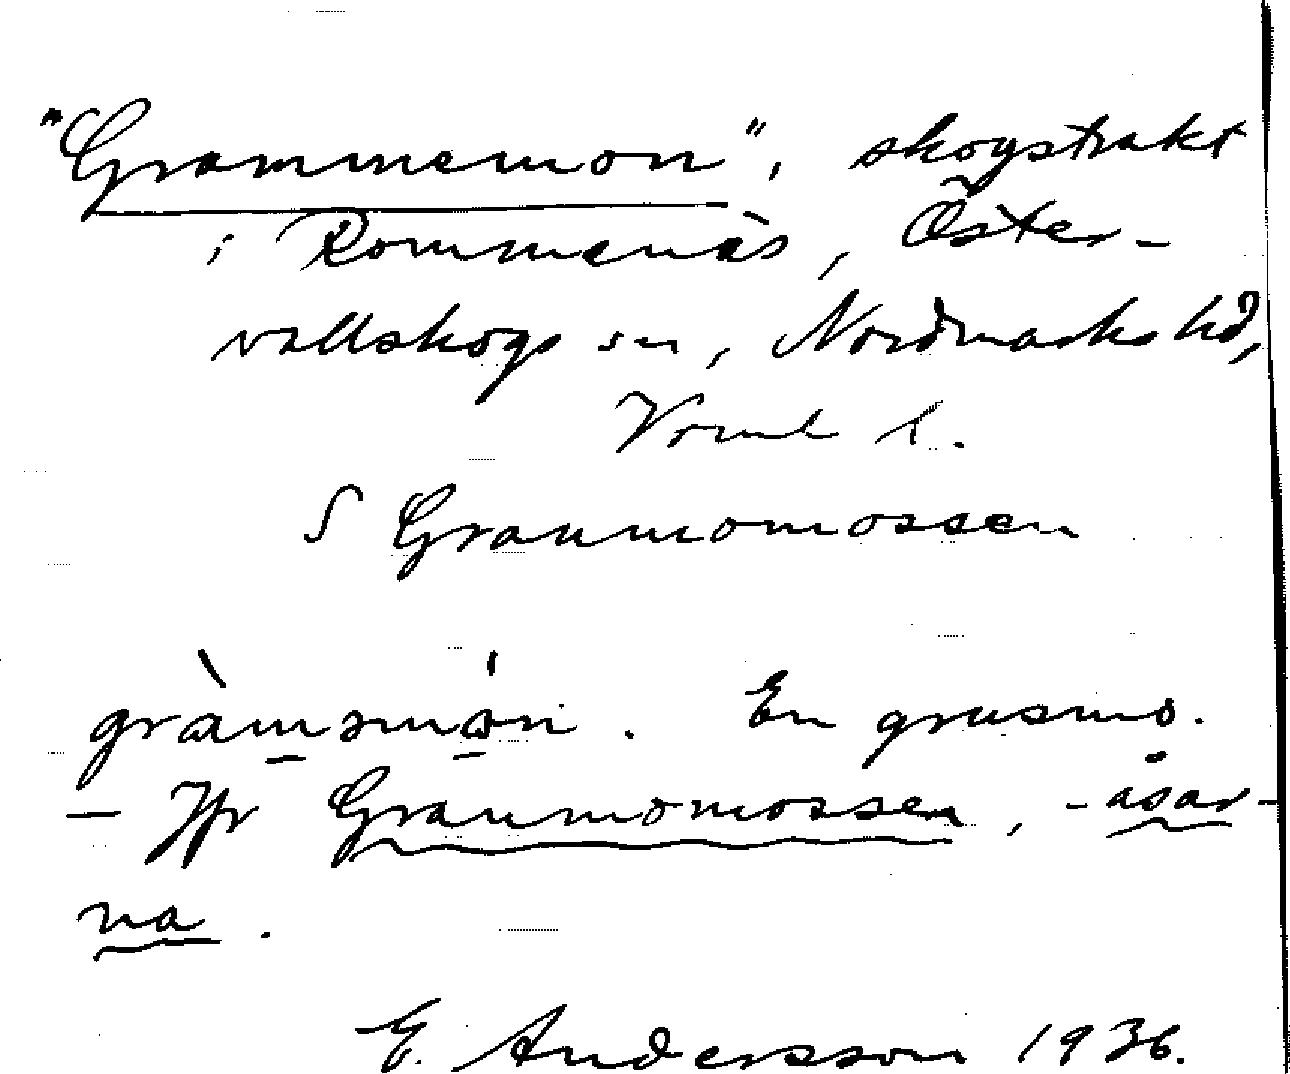 "Grammemon", skogstrakt
i Rommenäs, Öster-
vallskogs sn, Nordmarks hd,
Värml l.
S Grammomossen
En grusmo.
– Jfr Grammomossen, -åsar-
na.
E. Andersson 1936.